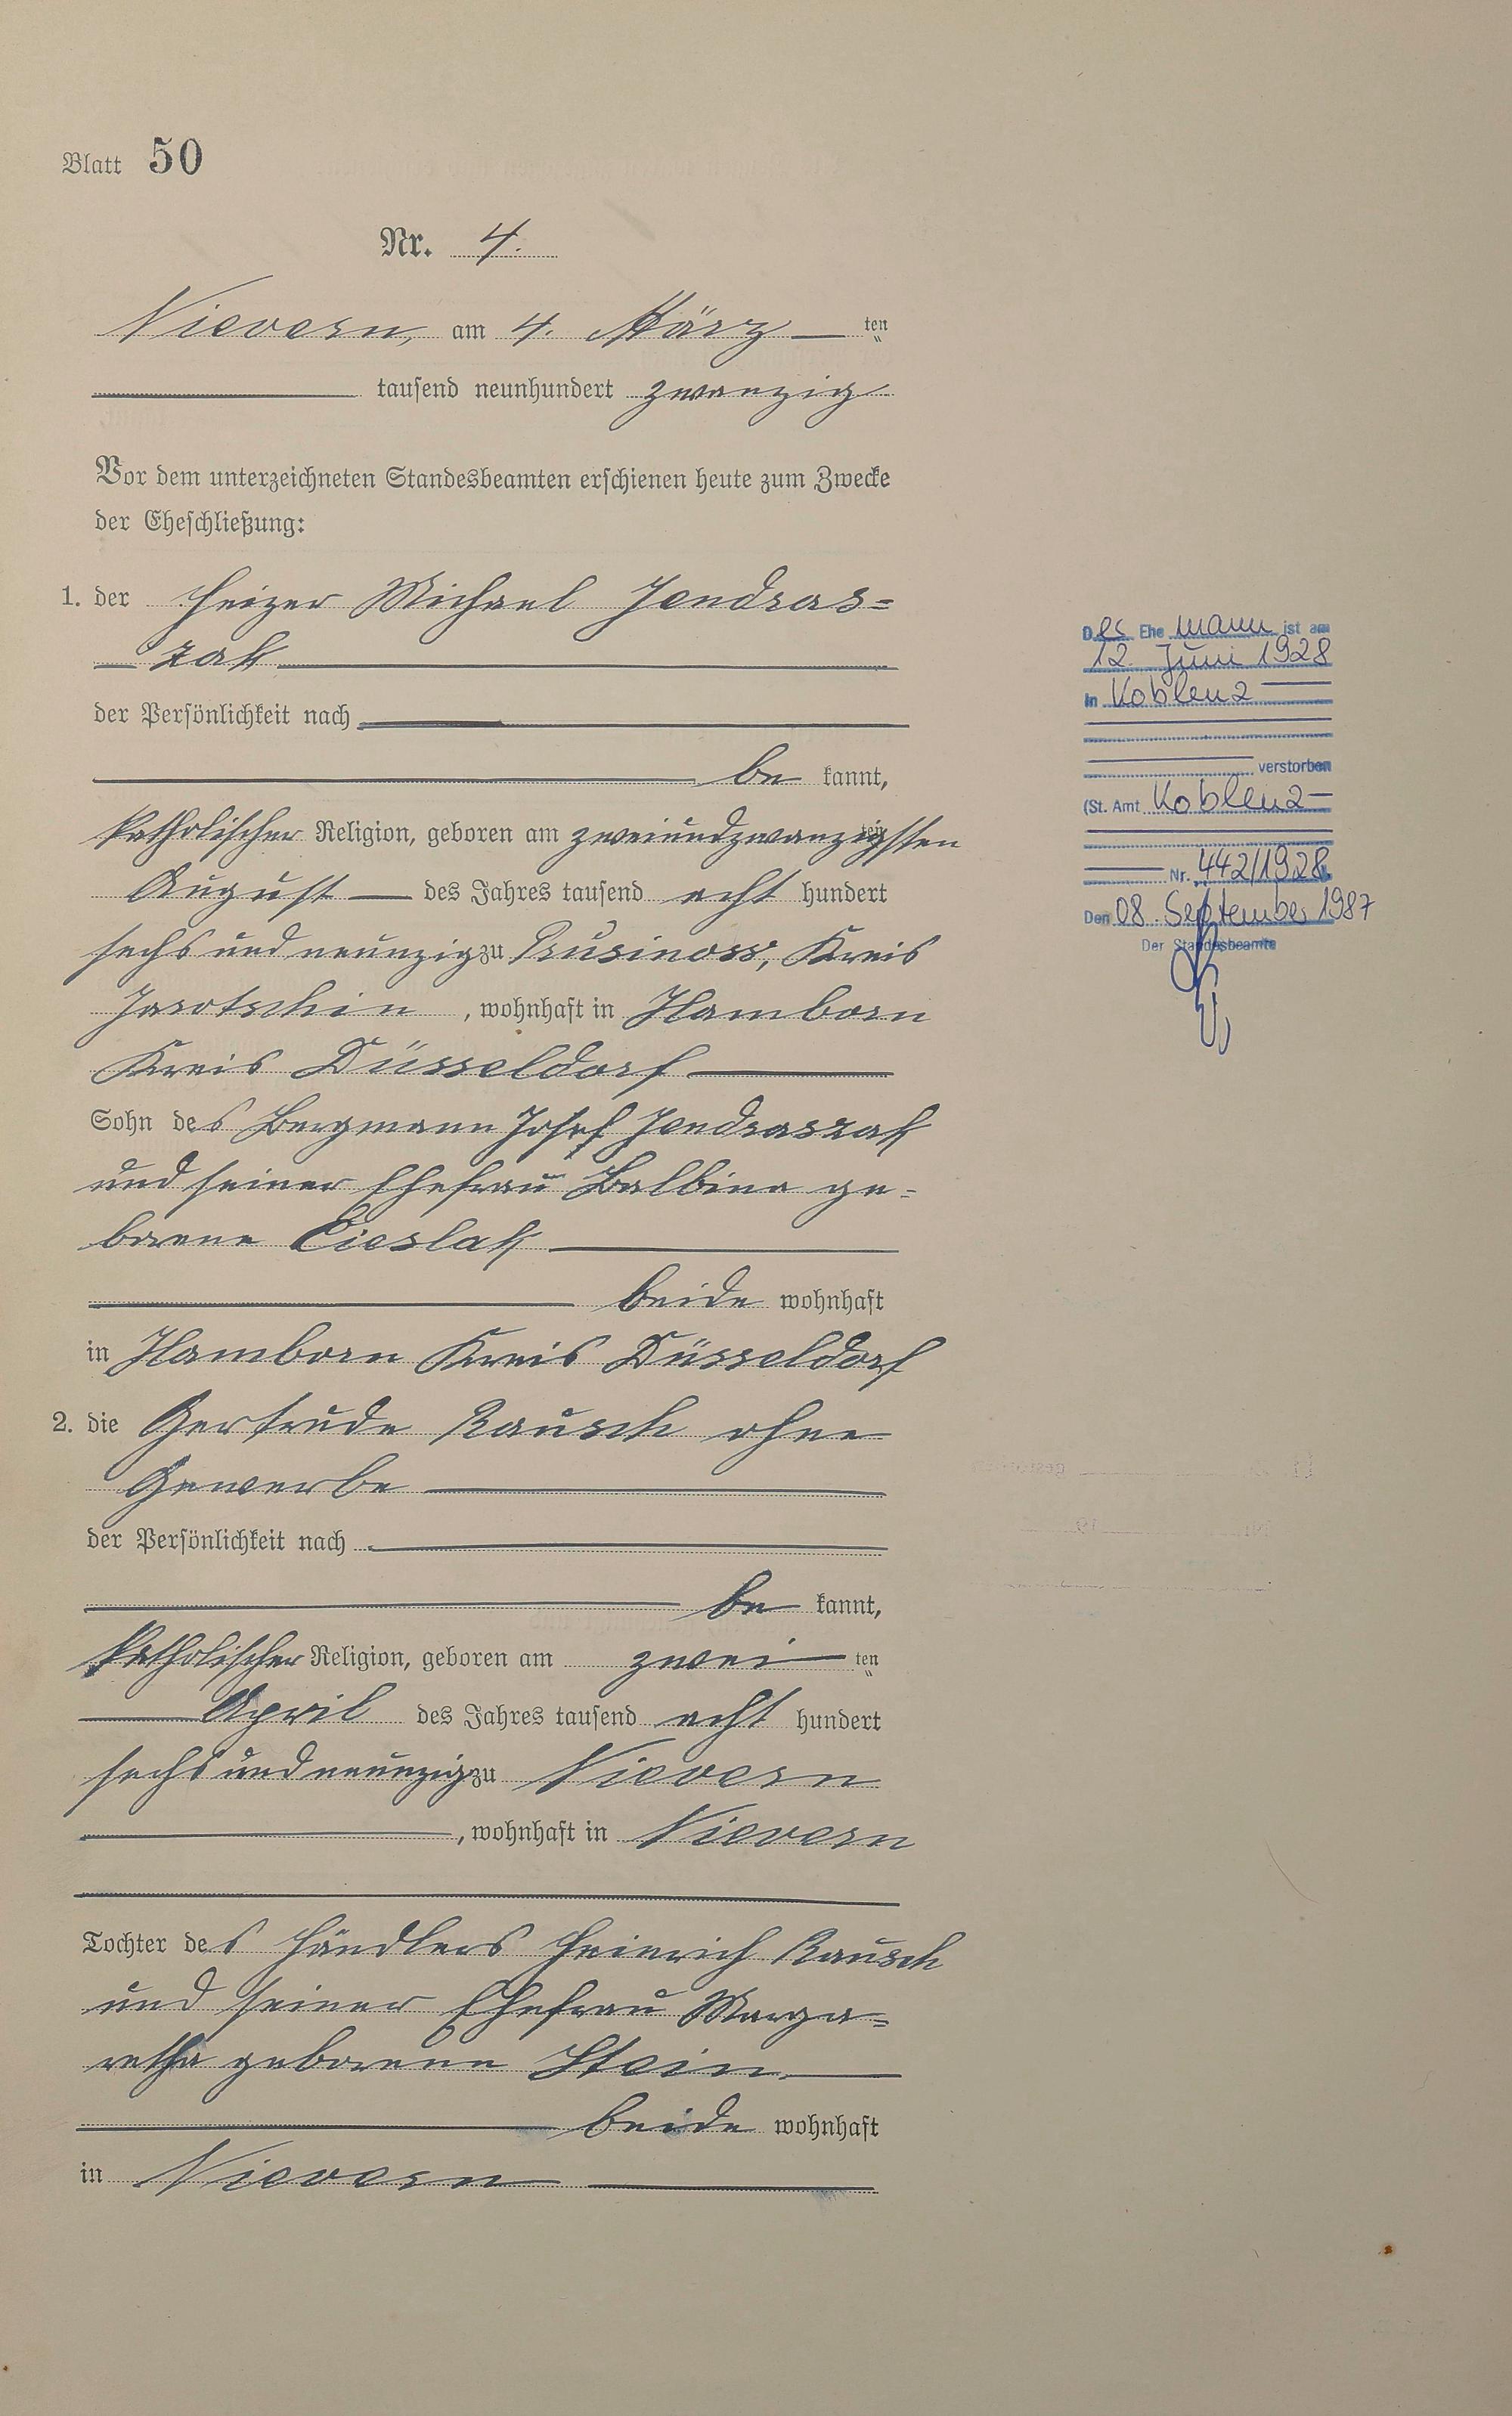 Blatt 50
Nr. 4.
Nievern, am 4. März ten
tausend neunhundert zwanzig
Vor dem unterzeichneten Standesbeamten erschienen heute zum Zwecke
der Eheschließung:
1. der Heizer Michael Jendras=
zak
der Persönlichkeit nach
be kannt,
katholischer Religion, geboren am zweiundzwanzigsten
August des Jahres tausend acht hundert
sechs und neunzig zu Prusinow, Kreis
Jarotschin, wohnhaft in Hamborn
Kreis Düsseldorf
Sohn des Bergmann Josef Jendraszak
und seiner Ehefrau Balbina ge=
borene Cieslak
beide wohnhaft
in Hamborn Kreis Düsseldorf
2. die Gertrude Rausch ohne
Gewerbe
der Persönlichkeit nach
be kannt,
katholischer Religion, geboren am zwei ten
April des Jahres tausend acht hundert
sechs und neunzig zu Nievern
, wohnhaft in Nievern
Tochter des Händlers Heinrich Rausch
und seiner Ehefrau Marga=
retha geborene Stein
beide wohnhaft
in Nievern
Der Ehe mann ist am
12. Juni 1928
in Koblenz
verstorben
(St. Amt Koblenz
Nr. 442/1928
Den 08. September 1987
Der Standesbeamte